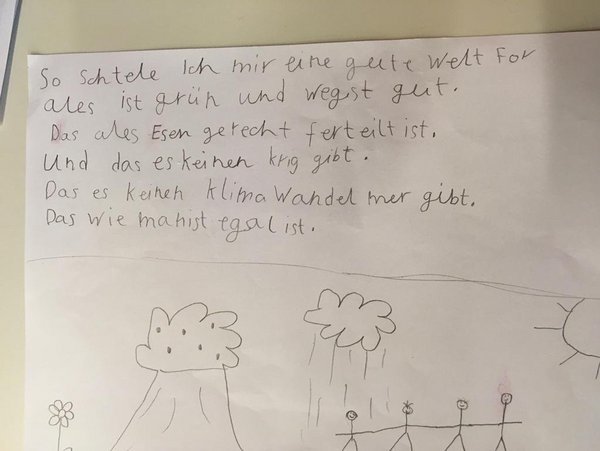 So Schtele Ich mir eine gute Welt For
ales ist grün und wegst gut.
Das ales Esen gerecht ferteilt ist.
Und das es keinen krig gibt.
Das es keinen klima Wandel mer gibt.
Das wie man ist egal ist.